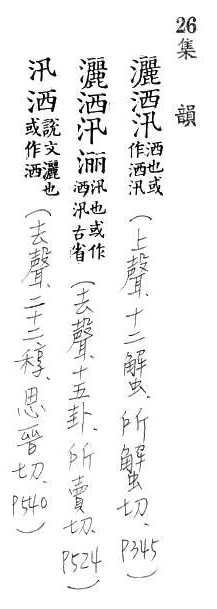 26 集韻
灑洒汛 洒也或作洒汛 （上聲、十二蟹、所蟹切、P345）
灑洒汛 汛也或作洒汛古省 （去聲、十五卦、所賣切、P524）
汛洒 說文灑也或作洒 （去聲、二十二稕、思晉切、P540）